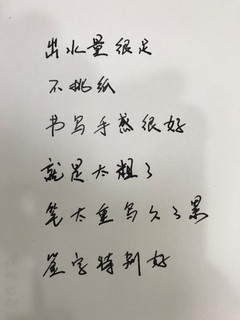 出水量很足
不挑纸
书写手感很好
就是太粗了
笔太重写久了累
签字特别好